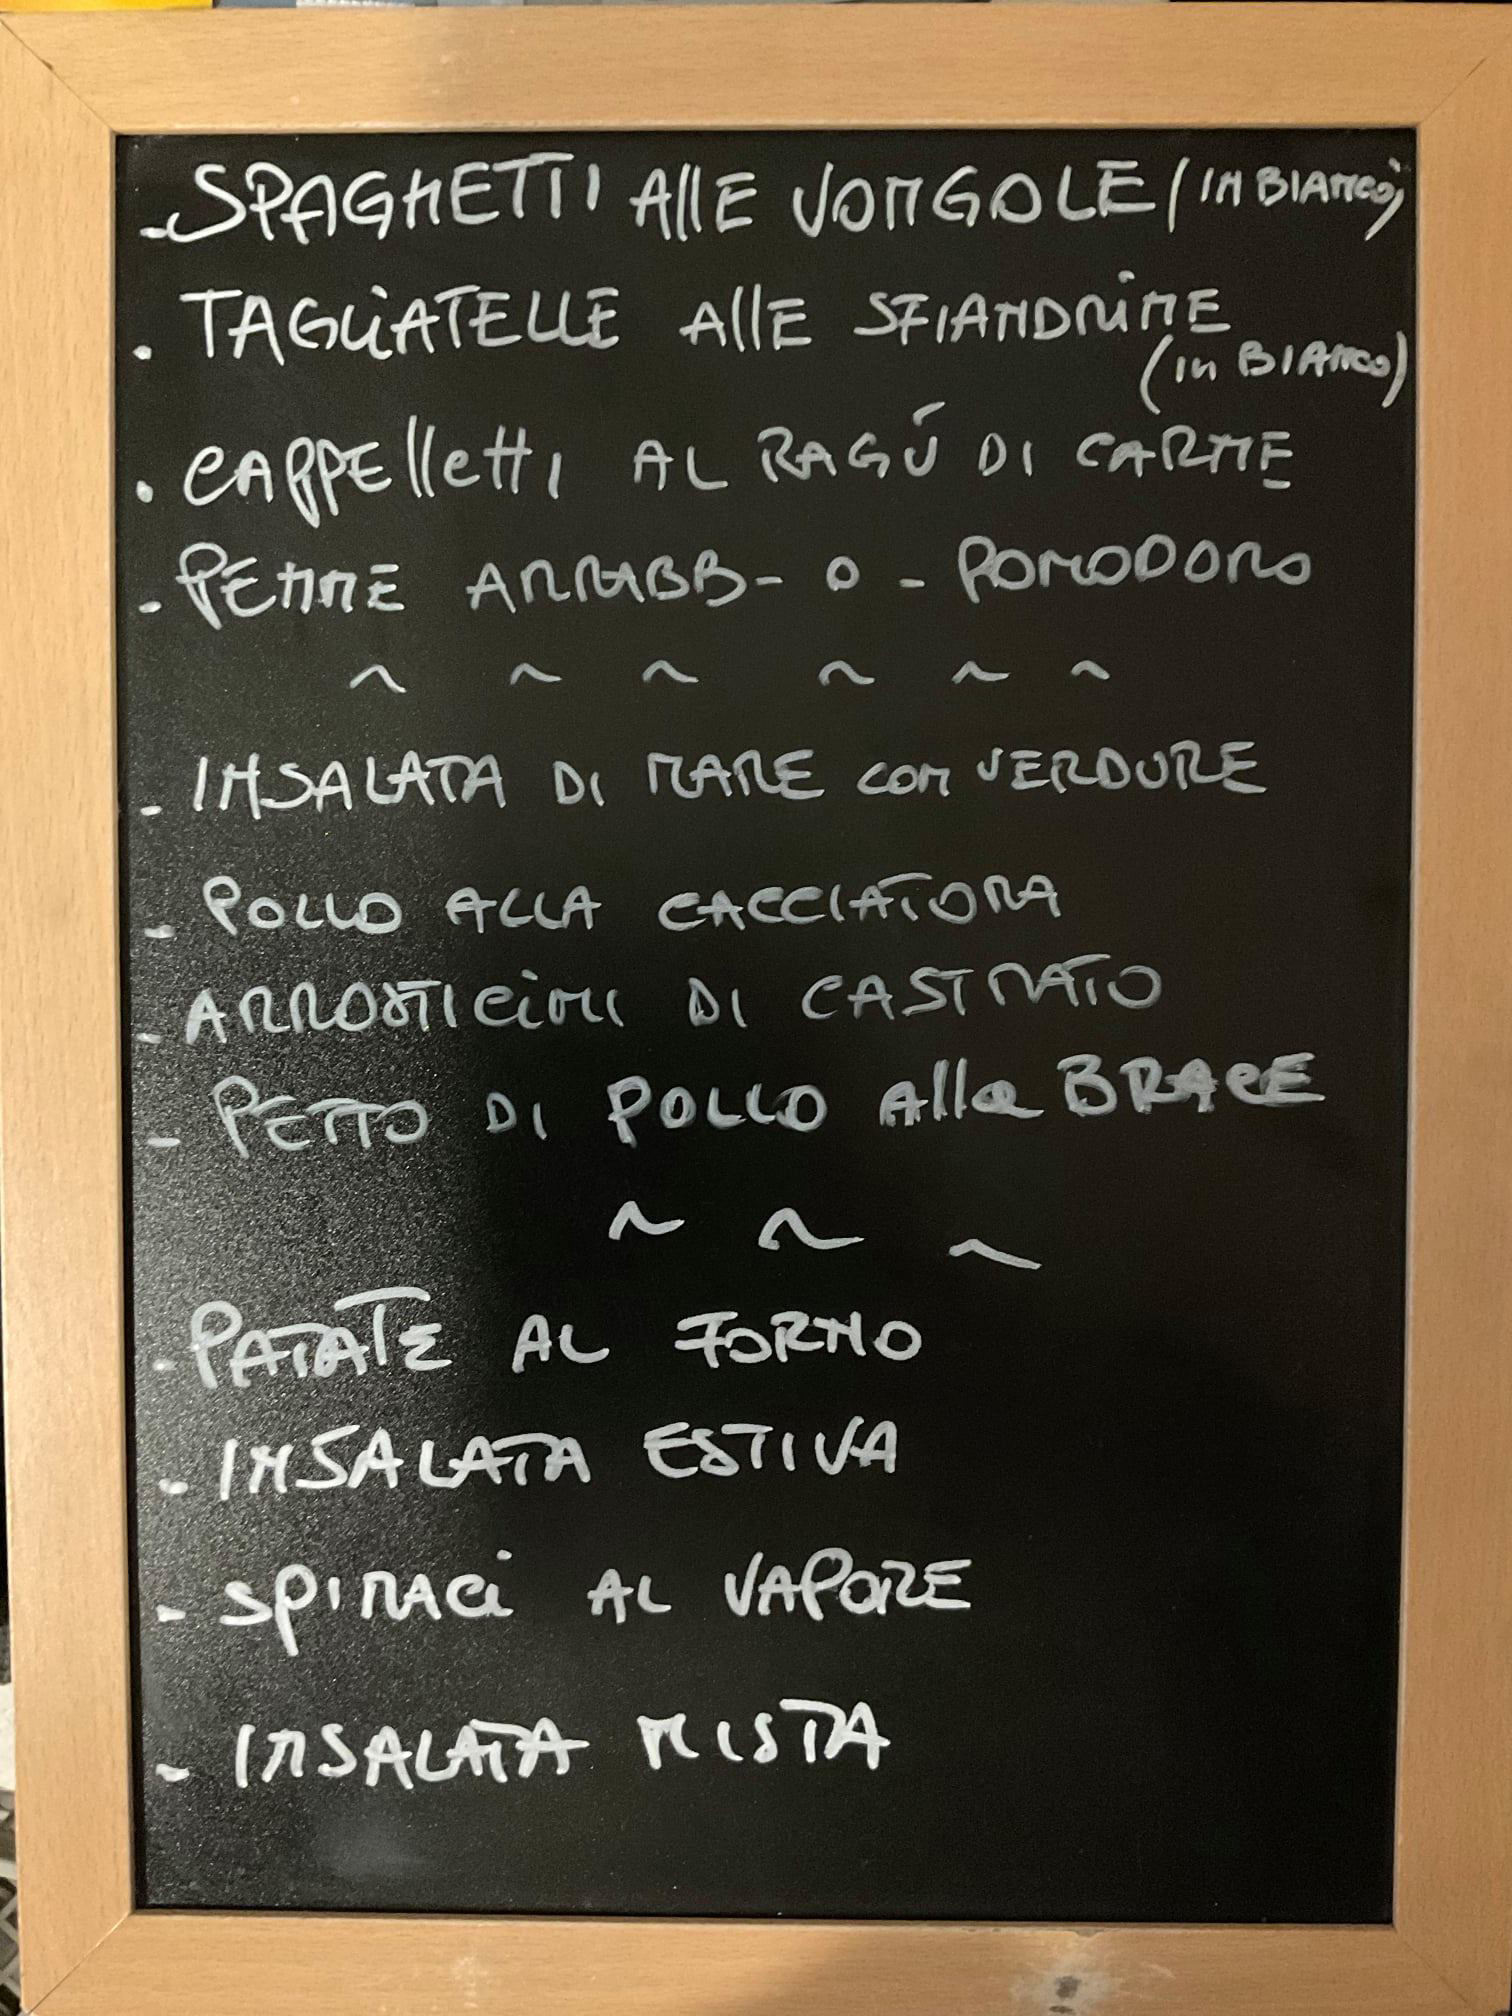 - SPAGHETTI AllE VONGOLE (IN BIANCO)
. TAGLiATELLE AllE SFIANDRiNE
(in BIANCO)
. CAPPElletti AL RAGÚ DI CARNE
- PENNE ARRABB- O - POMODORO
~ ~ ~ ~ ~ ~
- INSALATA DI MARE con VERDURE
- POLLO ALLA CACCIATORA
- ARROSTICiNI DI CASTRATO
- PETTO DI POLLO Alla BRACE
~ ~ ~
. PATATE AL FORNO
- INSALATA ESTIVA
- SPINACi AL VAPORE
- INSALATA MISTA